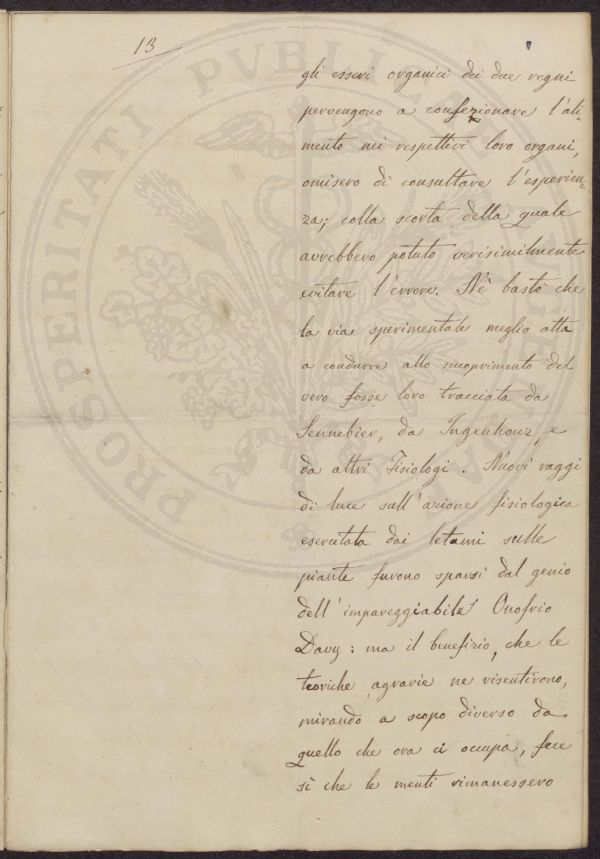 13
gli esseri organici dei due regni
pervengono a confezionare l'ali-
mento nei respettivi loro organi,
omisero di consultare l'esperien-
za; colla scorta della quale
avrebbero potuto verisimilmente
evitare l'errore. Nè bastò che
la via sperimentale meglio atta
a condurre allo scoprimento del
vero fosse loro tracciata da
Sennebier, da Ingenhouz, e
da altri Fisiologi. Nuovi raggi
di luce sull'azione fisiologica
esercitata dai letami sulle
piante furono sparsi dal genio
dell'impareggiabile Onofrio
Davy: ma il benefizio, che le
teoriche agrarie ne risentirono,
mirando a scopo diverso da
quello che ora ci occupa, fece
sì che le menti rimanessero
PROSPERITATI PVBLICAE